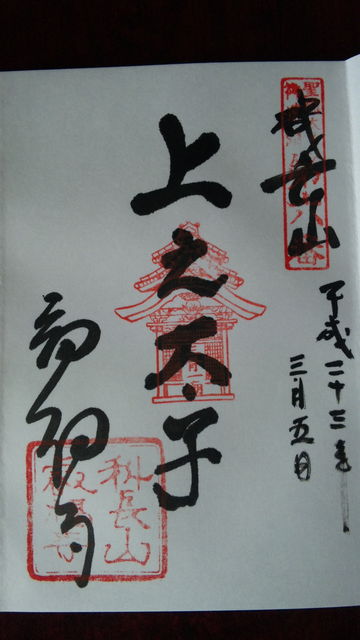 磯長山
平成二十三年
三月五日
上之太子
叡福寺
科長山
叡福寺